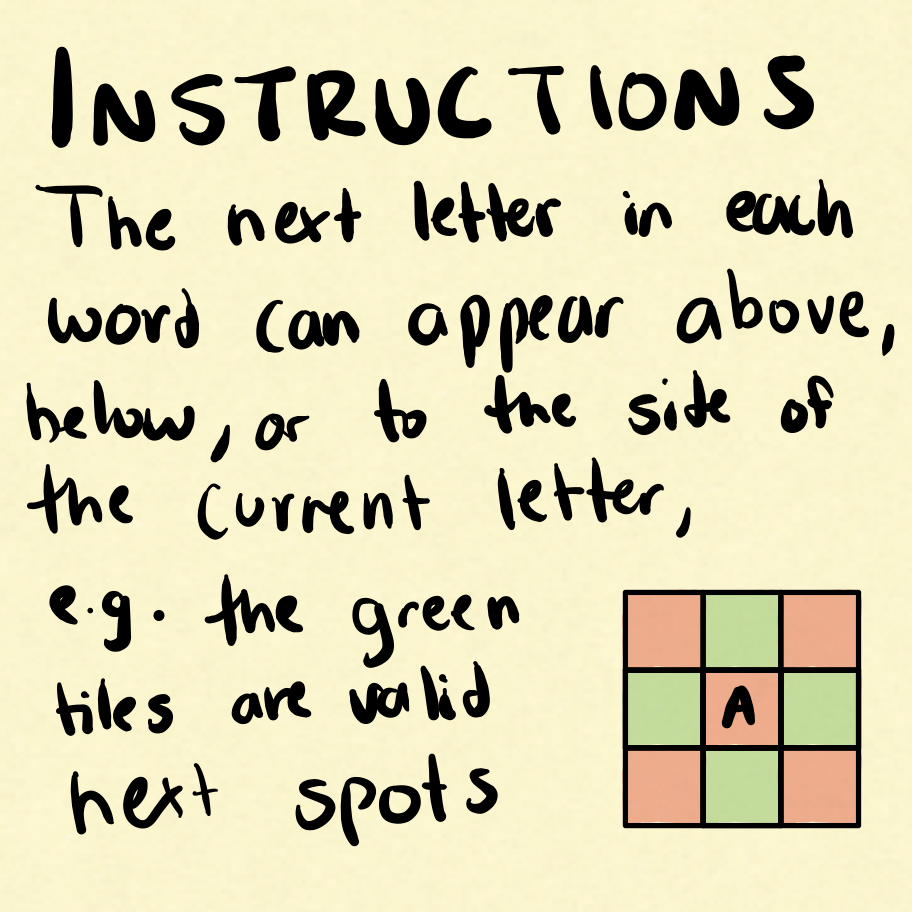 INSTRUCTIONS
The next letter in each
word can appear above,
below, or to the side of
the current letter,
e.g. the green
tiles are valid
next spots
A